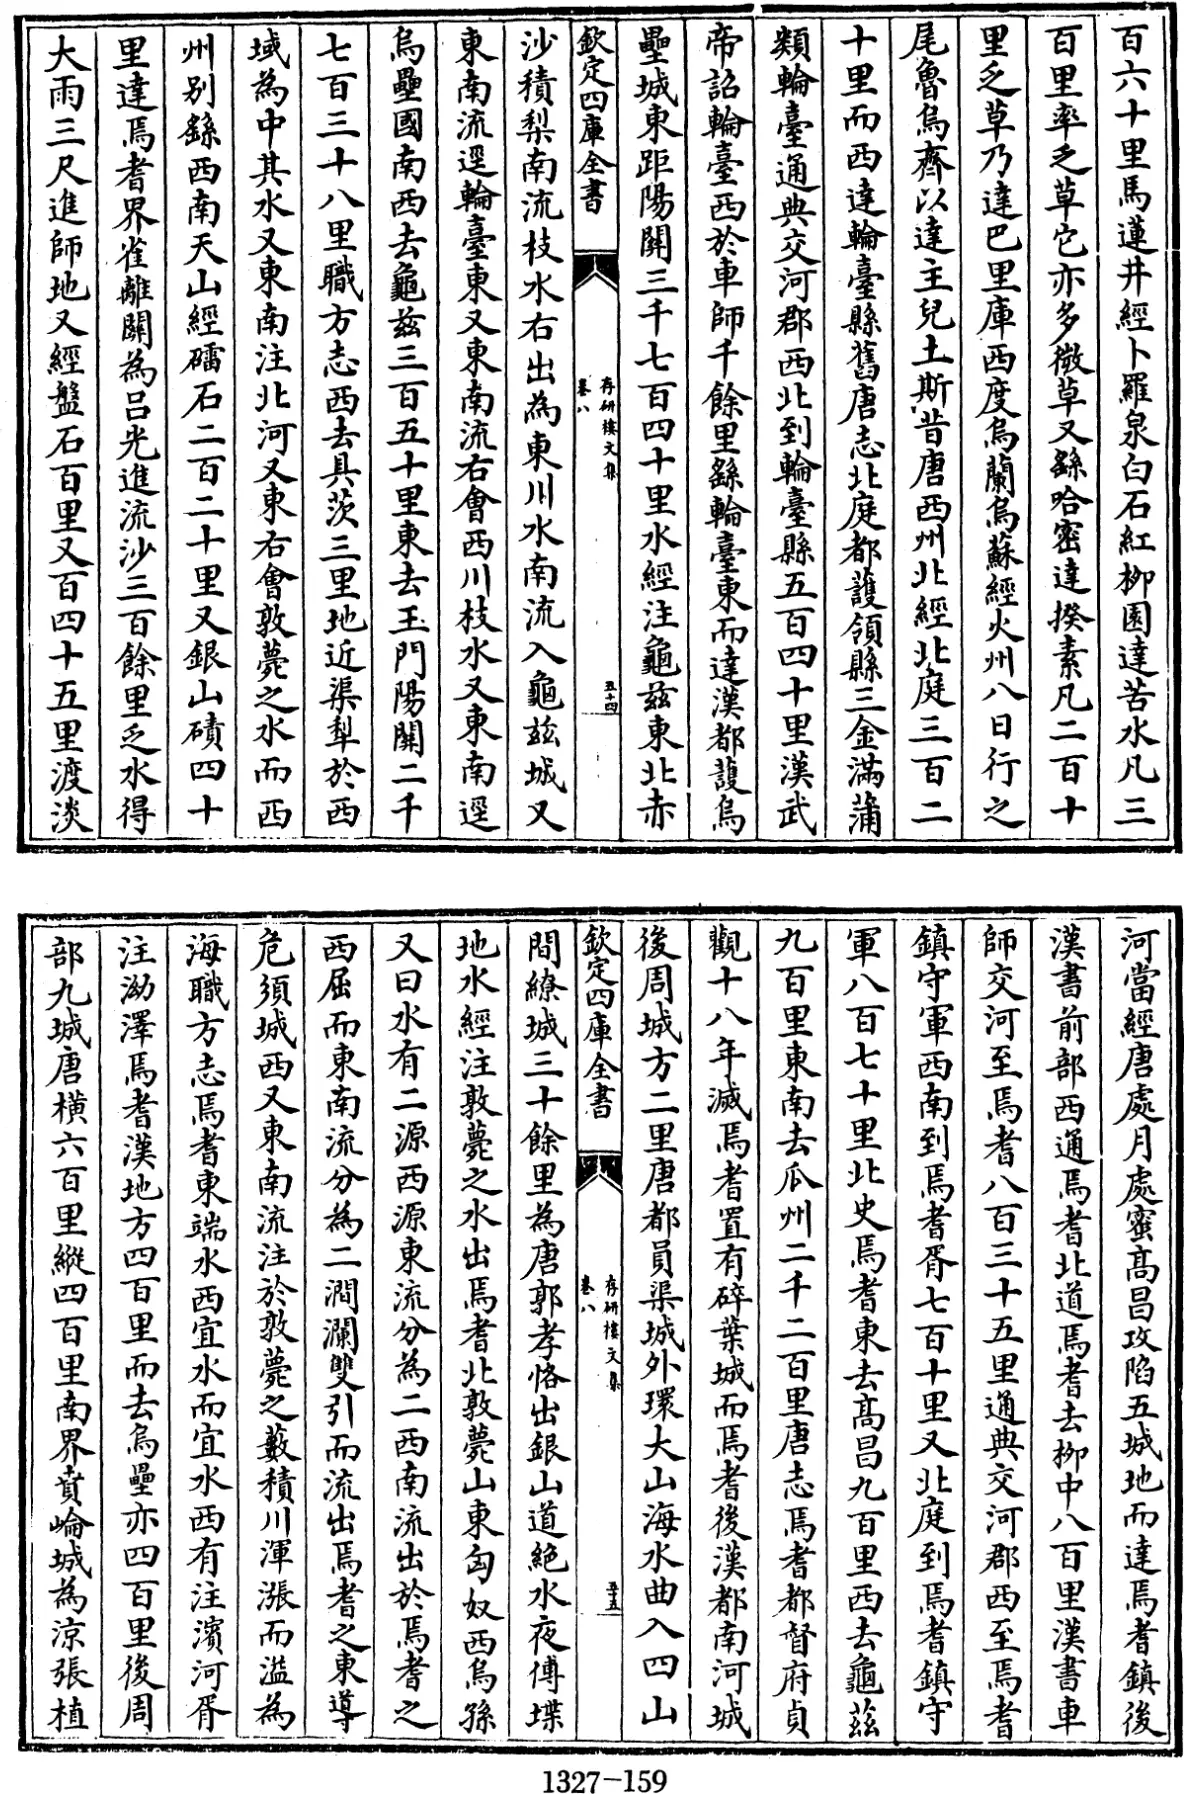 百六十里馬蓮井經卜羅泉白石紅柳園達苦水凡三
百里率乏草它亦多微草又繇哈密達揆素凡二百十
里乏草乃達巴里庫西度烏蘭烏蘇經火州八日行之
尾魯烏齊以達主兒土斯昔唐西州北經北庭三百二
十里而西達輪臺縣舊唐志北庭都護領縣三金滿蒲
類輪臺通典交河郡西北到輪臺縣五百四十里漢武
帝詔輪臺西於車師千餘里繇輪臺東而達漢都護烏
壘城東距陽關三千七百四十里水經注龜兹東北赤
欽定四庫全書
存研樓文集
卷八
五十四
沙積梨南流枝水右出為東川水南流入龜兹城又
東南流逕輪臺東又東南流右會西川枝水又東南逕
烏壘國南西去龜兹三百五十里東去玉門陽關二千
七百三十八里職方志西去具茨三里地近渠犁於西
域為中其水又東南注北河又東右會敦薨之水而西
州别繇西南天山經礌石二百二十里又銀山磧四十
里達焉耆界雀離關為吕光進流沙三百餘里乏水得
大雨三尺進師地又經盤石百里又百四十五里渡淡
河當經唐處月處蜜髙昌攻陷五城地而達焉耆鎮後
漢書前部西通焉耆北道焉耆去柳中八百里漢書車
師交河至焉耆八百三十五里通典交河郡西至焉耆
鎮守軍西南到焉耆胥七百十里又北庭到焉耆鎮守
軍八百七十里北史焉耆東去髙昌九百里西去龜兹
九百里東南去瓜州二千二百里唐志焉耆都督府貞
觀十八年滅焉耆置有碎葉城而焉耆後漢都南河城
後周城方二里唐都員渠城外環大山海水曲入四山
欽定四庫全書
存研樓文集
卷八
五十五
間繚城三十餘里為唐郭孝恪出銀山道絶水夜傅堞
地水經注敦薨之水出焉耆北敦薨山東匈奴西烏孫
又曰水有二源西源東流分為二西南流出於焉耆之
西屈而東南流分為二澗瀾雙引而流出焉耆之東導
危須城西又東南流注於敦薨之藪積川渾漲而溢為
海職方志焉耆東端水西宜水而宜水西有注濱河胥
注泑澤焉耆漢地方四百里而去烏壘亦四百里後周
部九城唐横六百里縱四百里南界賁崘城為涼張植
1327-159